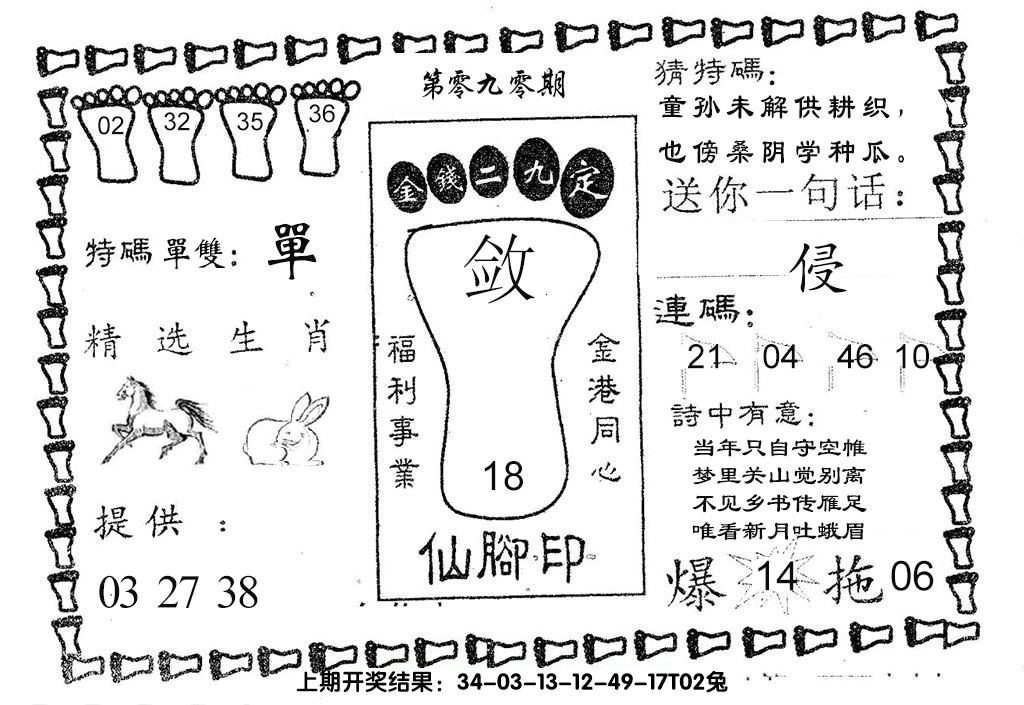 第零九零期
02 32 35 36
特碼單雙：單
精选生肖
提供：
03 27 38
金錢二九定
敛
福利事業
金港同心
18
仙腳印
猜特碼：
童孙未解供耕织，
也傍桑阴学种瓜。
送你一句话：
侵
連碼：
21 04 46 10
詩中有意：
当年只自守空帷
梦里关山觉别离
不见乡书传雁足
唯看新月吐蛾眉
爆 14 拖 06
上期开奖结果：34-03-13-12-49-17T02兔